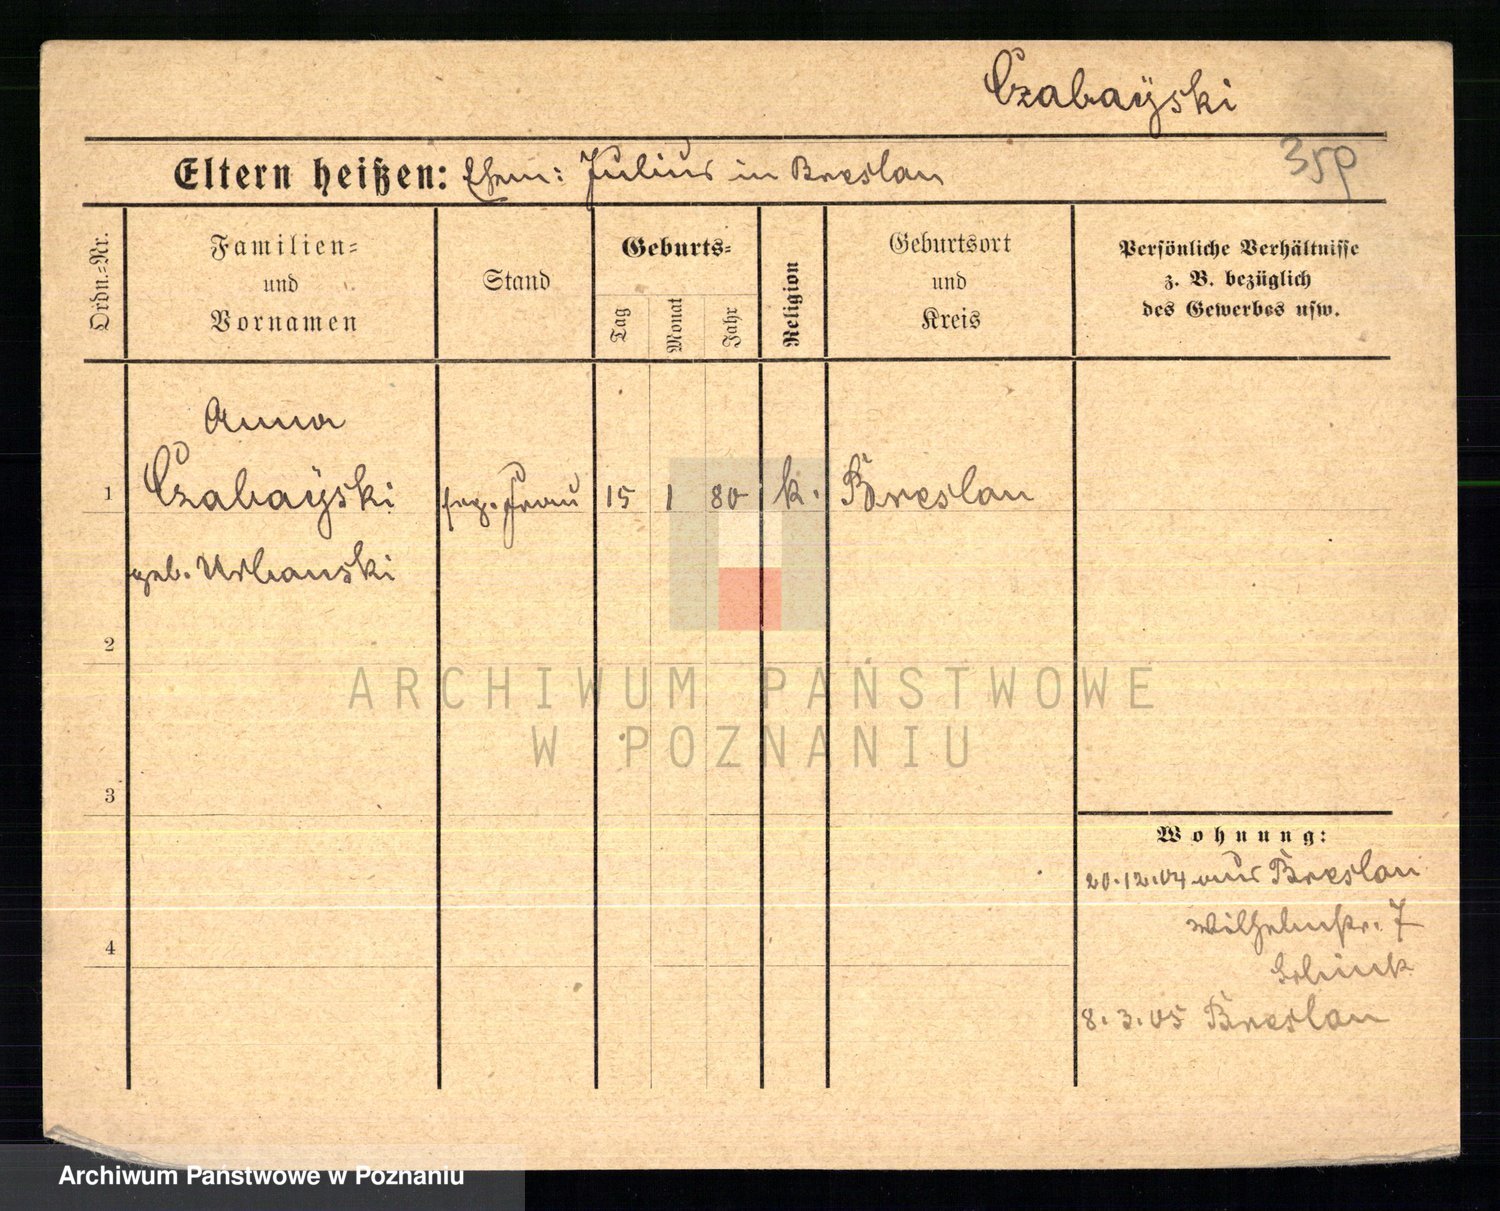 Czabaÿski
35p
Eltern heißen: Ehem: Julius in Breslau
Ordn.=Nr.
Familien=
und
Vornamen
Stand
Geburts=
Tag
Monat
Jahr
Religion
Geburtsort
und
Kreis
Persönliche Verhältnisse
z. B. bezüglich
des Gewerbes usw.
Anna
1 Czabaÿski Frau 15 1 80 k. Breslau
geb. Urbanski
2
3
4
Wohnung:
20.12.04 aus Breslau
Wilhelmstr. 7
8.3.05 Breslau
ARCHIWUM PAŃSTWOWE
W POZNANIU
Archiwum Państwowe w Poznaniu